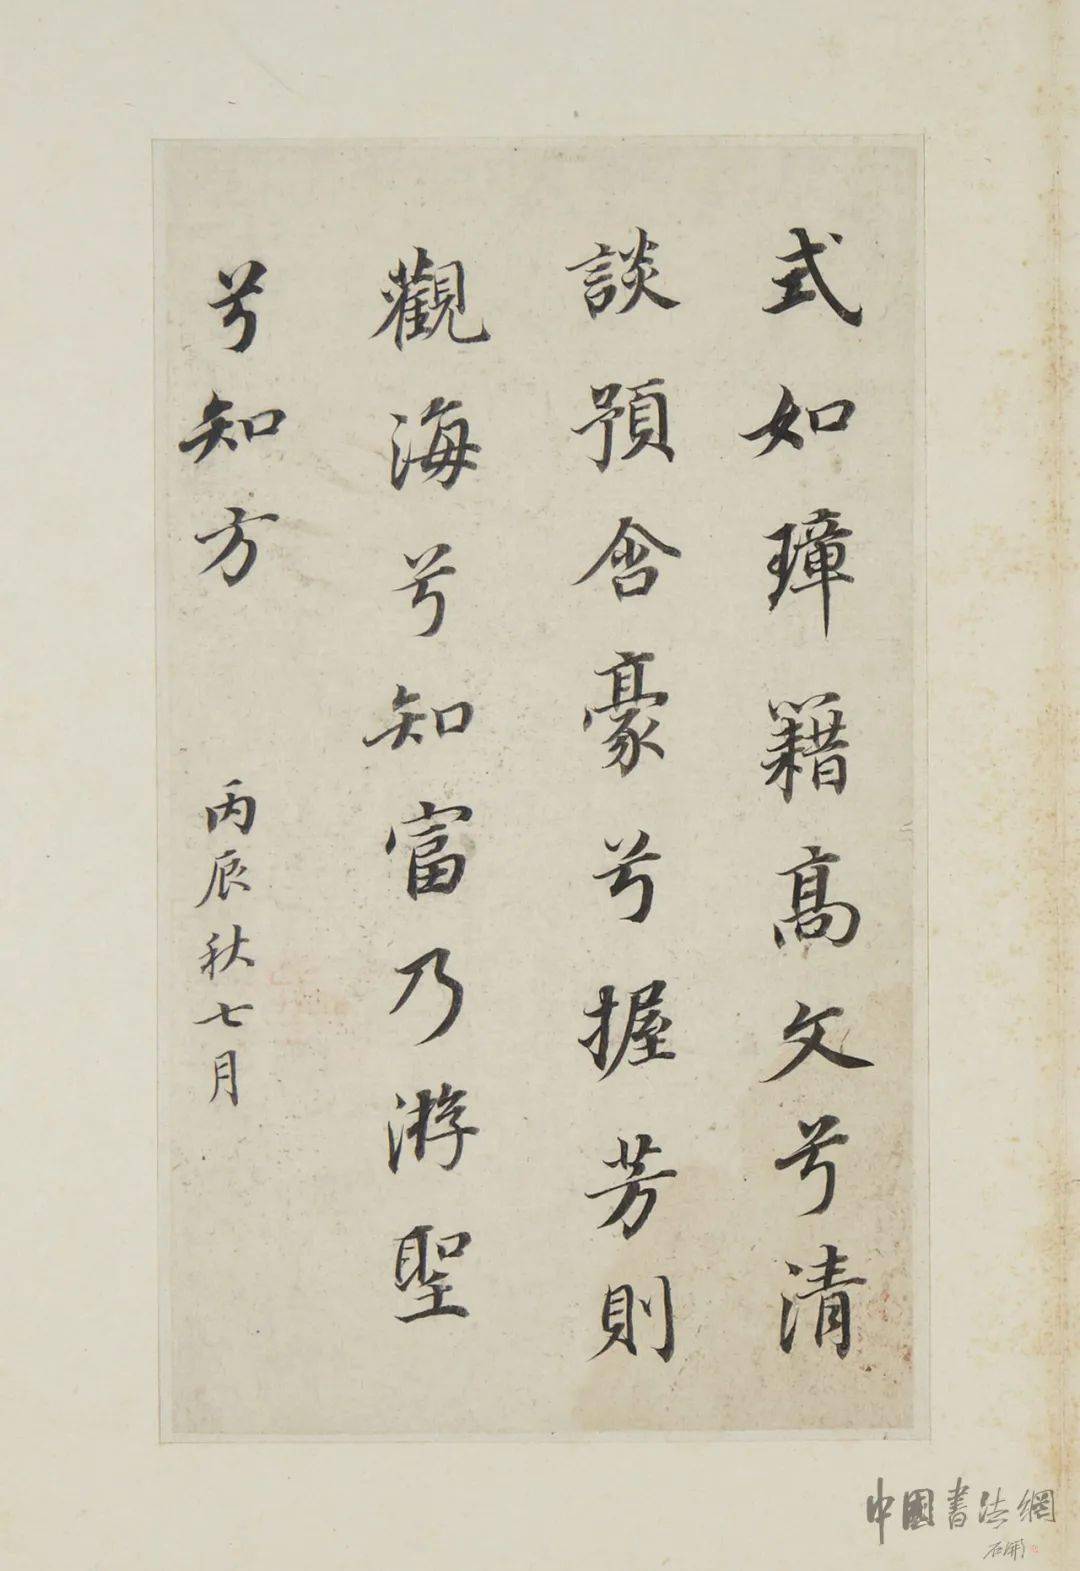 式如璋籍高文兮清
談預含豪兮握芳則
觀海兮知富乃游聖
兮知方
丙辰秋七月
中國書法網